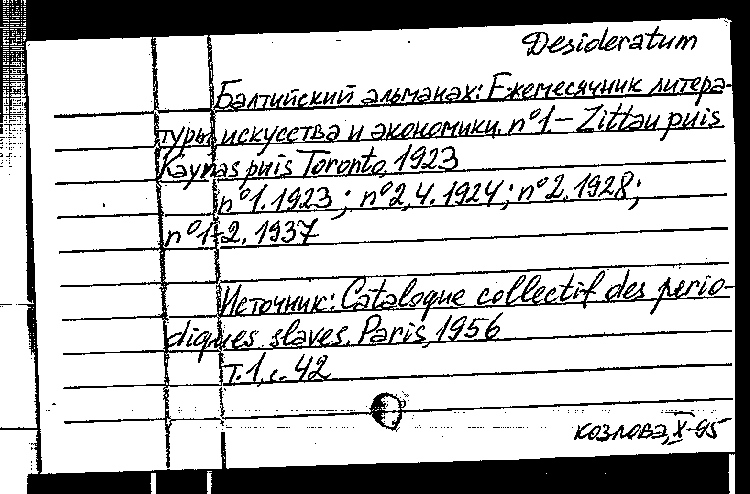 Desideratum
Балтийский альманах: Ежемесячник литера-
туры искусства и экономики. nº1.– Zittau puis
Kaynas puis Toronto, 1923
nº1.1923; nº2,4.1924; nº2.1928;
nº1-2.1937
Источник: Catalogue collectif des perio-
diques slaves. Paris, 1956
Т.1, с.42
Козлова, X-95